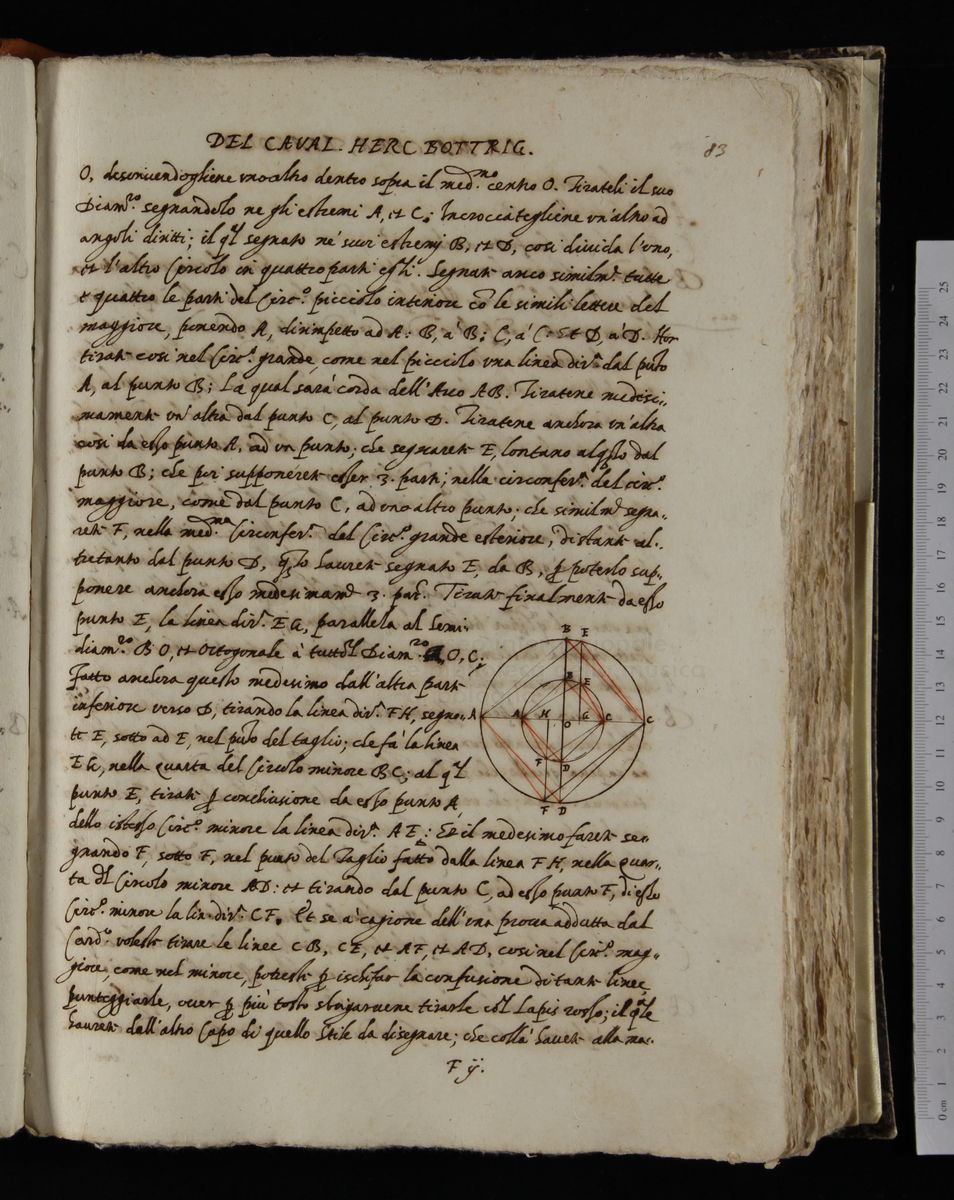 DEL CAVAL. HERC BOTTRIG.
83
O, descriuendogliene vno altro dentro sopra il med.mo centro O. Tirateli il suo
Diam.ro segnandolo ne gli estremi A, et C; Incrocciategliene vn'altro ad
angoli diritti; il q'l segnato ne' suoi estremi B, et D, cosi diuida l'vno,
et l'altro Circolo in quattro parti eq'li. Segnate anco similm.e tutte
e quattro le parti del Circ.o picciolo interiore co' le simili lettere del
maggiore, ponendo A, dirimpetto ad A: B, a' B; C, a' C: Et D, a' D. Hor
tirate cosi nel Circ.o grande, come nel picciolo vna linea dir.a dal pu'to
A, al punto B; La qual sarà corda dell'Arco AB. Tiratene medesi-
mamente vn' altra dal punto C, al punto D. Tiratene anchora vn'altra
cosi da esso punto A, ad vn punto, che segnarete E, lontano alq'to dal
punto B; che per supponerete esser 3. parti, nella circonfer.a del circ.o
maggiore, come dal punto C, ad vno altro punto, che similm.e segna-
rete F, nella med.ma Circonfer.a del Circ.o grande esteriore, distante al-
tretanto dal punto D, q'to haurete segnato E, da B, p poterlo sup-
ponere anchora esso medesimam.e 3. par. Tirate finalmente da esso
punto E, la linea dir.a EG, parallela al Semi-
diam.ro BO, et Octogonale a tutto'l Diam.ro A, O, C;
Fatto anchora questo medesimo dall'altra parte
inferiore verso D, tirando la linea dir.a FH, segna-
te E, sotto ad E, nel pu'to del taglio; che fa' la linea
EG, nella quarta del Circolo minore BC; al q'l
punto E, tirate p conclusione da esso punto A,
dello istesso Circ.o minore la linea dir.a AE: Et il medesimo farete se-
gnando F, sotto F, nel punto del Taglio fatto dalla linea FH, nella quar-
ta d'l Circolo minore AD: et tirando dal punto C, ad esso punto F, di esso
Circ.o minore la lin. dir.a CF. Et se a' cagione dell'vna proua addutta dal
Card.o voleste tirare le linee CB, CE, et AF, et AD, cosi nel Circ.o mag-
giore, come nel minore, potreste p ischifar la confusione di tante linee
punteggiarle, ouer p più tosto sbrigaruene tirarle co'l Lapis rosso; il q'le
haurete dall'altro Capo di quello Stile da disegnare; che costì hauete alla ma-
B E
B E
A A H O G C C
F D
F D
F ij.